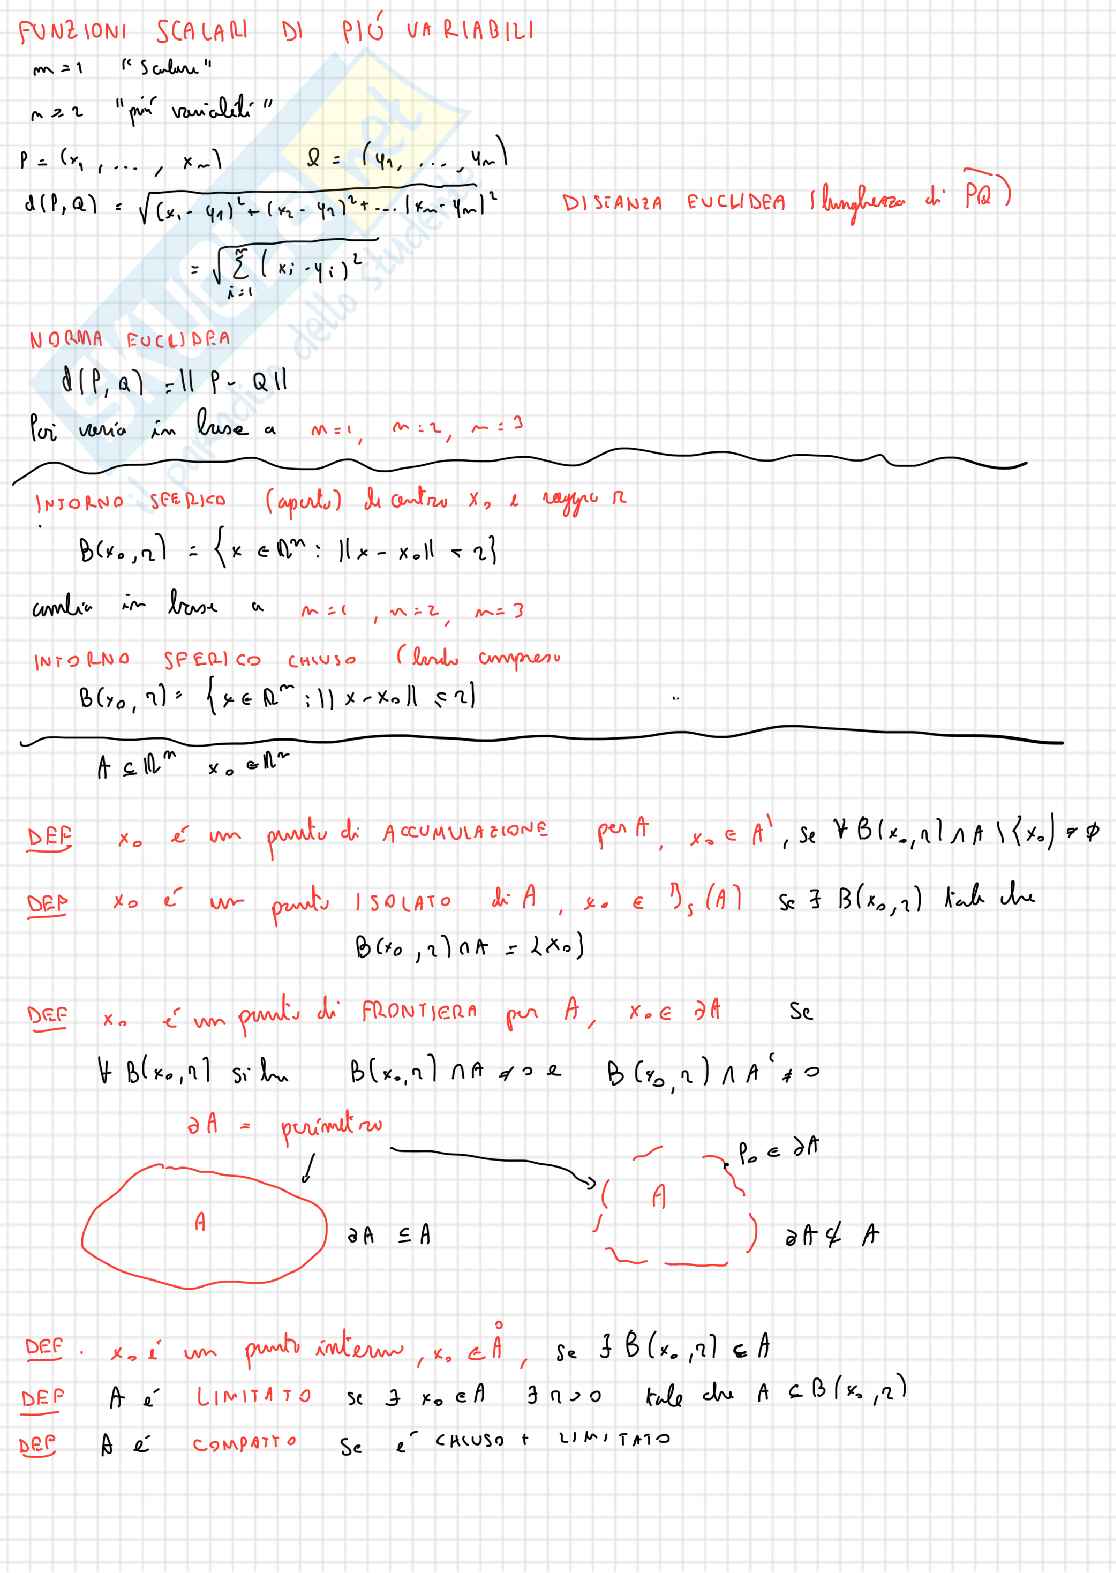 FUNZIONI SCALARI DI PIÚ VARIABILI
m=1 "Scalare"
n≥2 "più variabili"
P = (x₁, ..., xₙ) Q = (y₁, ..., yₙ)
d(P,Q) = √(x₁-y₁)²+(x₂-y₂)²+...(xₙ-yₙ)² DISTANZA EUCLIDEA (lunghezza di PQ)
= √∑ⁿᵢ₌₁(xᵢ-yᵢ)²
NORMA EUCLIDEA
d(P,Q) = || P-Q ||
Poi varia in base a n=1, n=2, n=3
INTORNO SFERICO (aperto) di centro x₀ e raggio r
B(x₀,r) = {x ∈ ℝⁿ : ||x-x₀|| < r}
cambia in base a n=1, n=2, n=3
INTORNO SFERICO CHIUSO (bordo compreso
B(x₀,r) = {x ∈ ℝⁿ : || x-x₀|| ≤ r}
A ⊆ ℝⁿ x₀ ∈ ℝⁿ
DEF x₀ é un punto di ACCUMULAZIONE per A, x₀ ∈ A', se ∀ B(x₀,r) ∩ A \ {x₀} ≠ ∅
DEF x₀ é un punto ISOLATO di A, x₀ ∈ ℐs(A) se ∃ B(x₀,r) tale che
B(x₀,r) ∩ A = {x₀}
DEF x₀ é un punto di FRONTIERA per A, x₀ ∈ ∂A se
∀ B(x₀,r) si ha B(x₀,r) ∩ A ≠ 0 e B(x₀,r) ∩ Aᶜ ≠ 0
∂A = perimetro
P₀ ∈ ∂A
A
A
∂A ⊆ A
∂A ⊄ A
DEF. x₀ é un punto interno, x₀ ∈ Å, se ∃ B(x₀,r) ⊆ A
DEF A é LIMITATO se ∃ x₀ ∈ A ∃ r>0 tale che A ⊆ B(x₀,r)
DEF A é COMPATTO se é CHIUSO + LIMITATO
SKUOLA.net
il paradiso dello studente